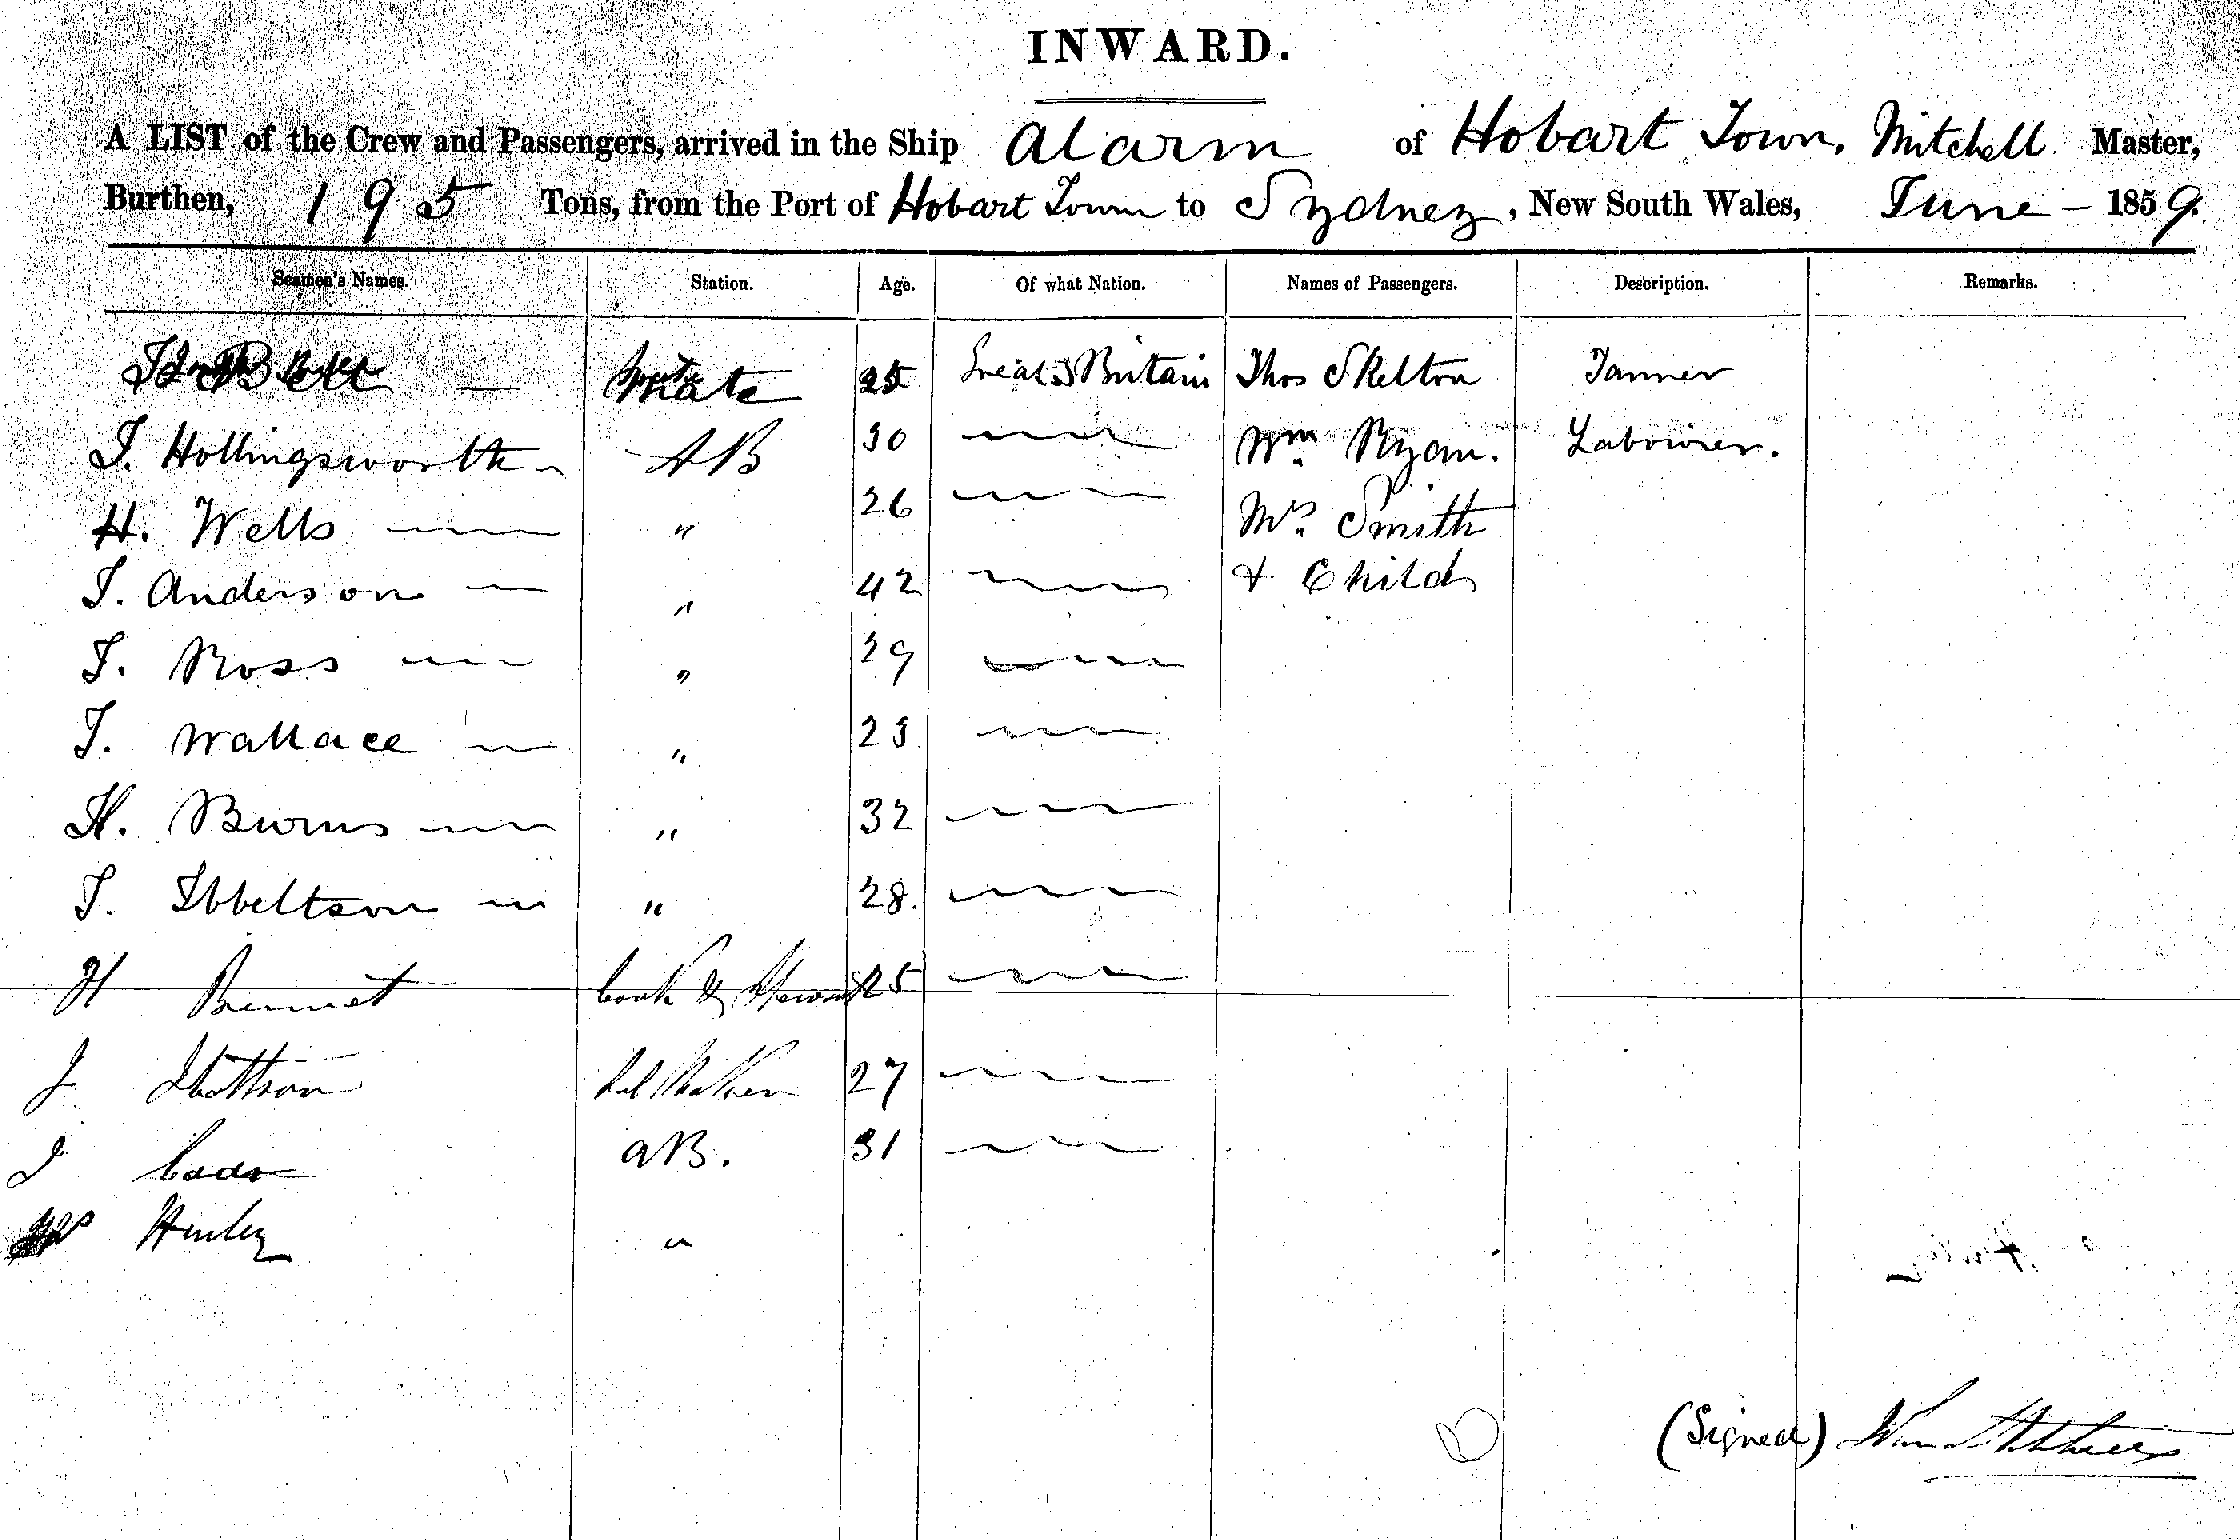 INWARD.
A LIST of the Crew and Passengers, arrived in the Ship Alarm of Hobart Town, Mitchell Master,
Burthen, 195 Tons, from the Port of Hobart Town to Sydney, New South Wales, June - 1859.
Seamen's Names. Station. Age. Of what Nation. Names of Passengers. Description. Remarks.
Bell Mate 25 Great Britain Thos Skelton Tanner
T. Hollingsworth AB 30 Wm Ryan. Labourer.
H. Wells " 26 Mrs Smith
T. Anderson " 42 & Child
T. Ross " 29
T. Wallace " 23
H. Burns " 32
T. Ibbeltson " 28.
H Bennet Cook & Steward 25
J 27
J AB. 31
Henley "
(Signed) Wm